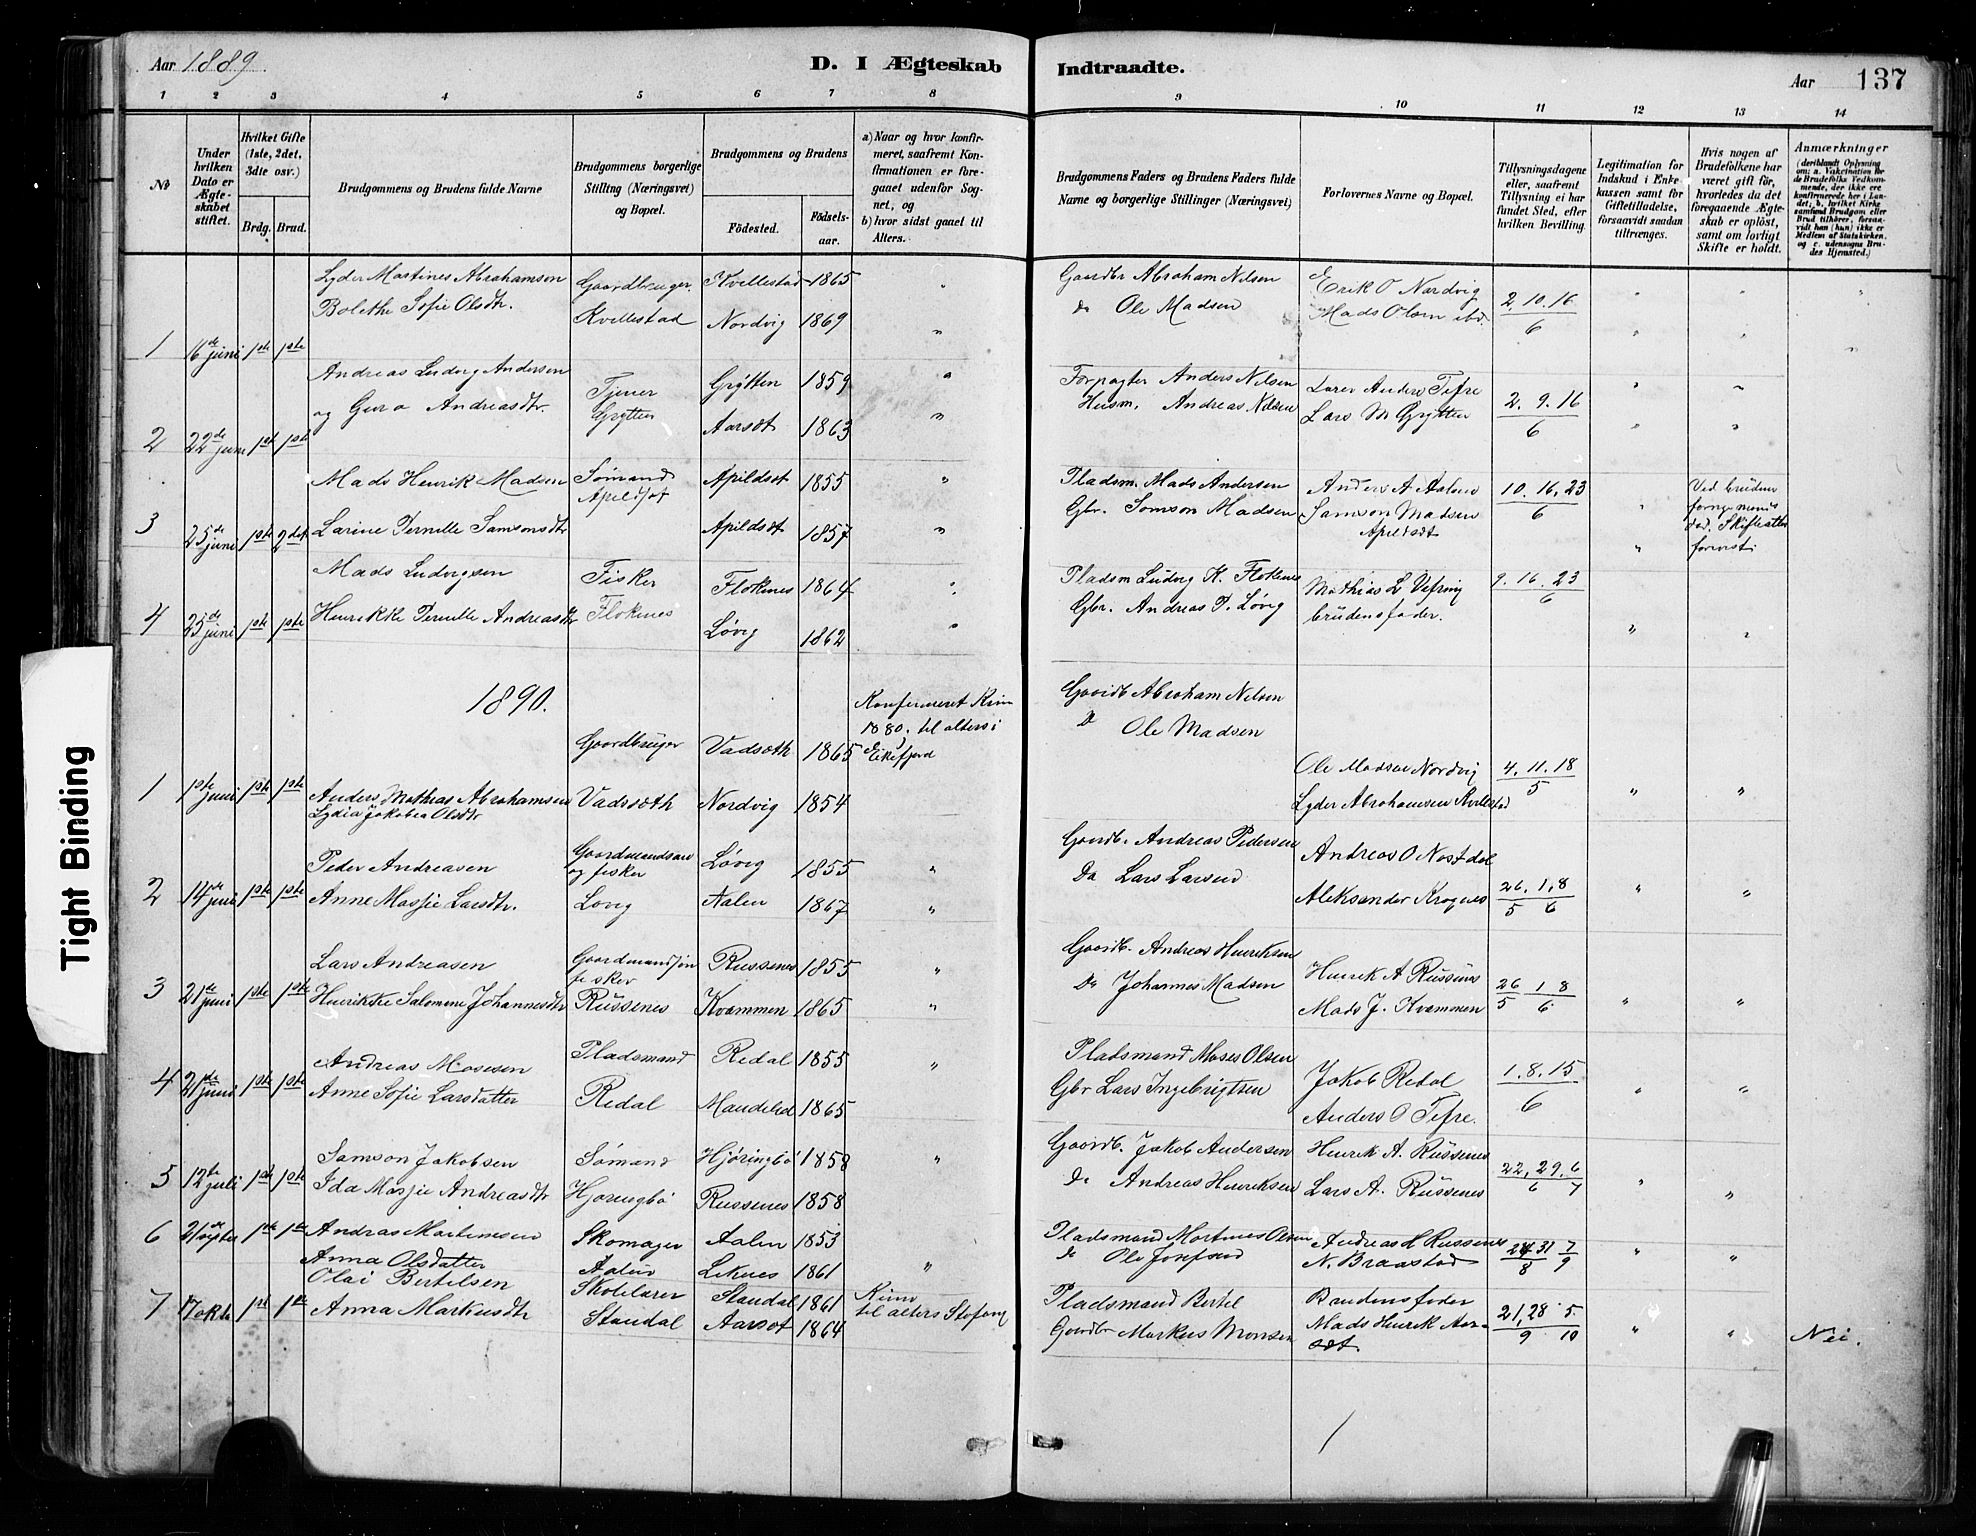 Aar 1889.
D. I Ægteskab Indtraadte.
Aar 137
1 2 3 4 5 6 7 8 9 10 11 12 13 14
No
Under hvilken Dato er Ægteskabet stiftet.
Hvilket Gifte (1ste, 2det, 3die osv.)
Brdg. Brud.
Brudgommens og Brudens fulde Navne
Brudgommens borgerlige Stilling (Næringsvei) og Bopæl.
Brudgommens og Brudens
Födested.
Födsels-aar.
a) Naar og hvor konfirmeret, saafremt Konfirmationen er foregaaet udenfor Sognet, og
b) hvor sidst gaaet til Alters.
Brudgommens Faders og Brudens Faders fulde Navne og borgerlige Stillinger (Næringsvei)
Forlovernes Navne og Bopæl.
Tillysningsdagene eller, saafremt Tillysning ei har fundet Sted, efter hvilken Bevilling.
Legitimation for Indskud i Enkekassen samt for Giftetilladelse, forsaavidt saadan tiltrænges.
Hvis nogen af Brudefolkene har været gift för, hvorledes da det foregaaende Ægteskab er oplöst, samt om lovligt Skifte er holdt.
Anmærkninger
(deriblandt Oplysning om: a. Vakcination for de Brudefolks Vedkommende, der ikke ere konfirmerede her i Landet, b. hvilket Kirkesamfund Brudgom eller Brud tilhörer, forsaavidt han (hun) ikke er Medlem af Statskirken, og c. udensogns Brudes Hjemsted.)
1 16de juni 1ste 1ste Lyder Martines Abrahamsen Gaardbruger Kvellestad 1865 " Gaardbr Abraham Nilsen Erik O Nordvig 2, 10. 16 " " "
Bolethe Sofie Olsdtr. Kvellestad Nordvig 1869 " do Ole Madsen Mads Olsen ibd. 6 " " "
2 22de juni 1ste 1ste Andreas Ludvig Andersen Tjener Grÿtten 1859 " Forpagter Anders Nilsen Lærer Anders Tefre 2. 9. 16 " "
og Guro Andreasdtr. Grÿtten Aarsæt 1863 " Husm. Andreas Nilsen Lars M Grÿtten 6 " "
3 25de juni 1ste 2det Mads Henrik Madsen Sømand Apildsæt 1855 " Pladsm. Mads Andersen Anders A Aalen 10. 16, 23 " Ved brudens
Larine Pernille Samsonsdtr Apildsæt Apildsæt 1857 " Gbr. Samson Madsen Samson Madsen 6 "
Apildsæt
død. Skifteatt
4 25de juni 1ste 1ste Mads Ludvigsen Fisker Flokenes 1864 " Pladsm Ludvig K. Flokenes Mathias L Vefring 9. 16. 23
Henrikke Pernille Andreasdtr Flokenes Løvig 1862 " Gbr. Andreas P. Løvig brudensfader. 6 " "
1890.
1 1ste juni 1ste 1ste Anders Mathias Abrahamsen Gaardbruger Vadsæth 1865 Konfirmeret Kinn
1880. til alters i
Eikefjord
Gaardb Abraham Nilsen Ole Madsen Nordvig 4. 11. 18
Lydia Jakobea Olsdtr Vadsæth Nordvig 1854 Do Ole Madsen Lyder Abrahamsen Kvellestad 5 " "
2 14de juni 1ste 1ste Peder Andreasen Gaardmandssøn og fisker Løvig 1855 " Gaardb. Andreas Pedersen Andreas O Nostdal
Anne Masjie Larsdtr. Lovig Aalen 1867 " Do Lars Larsen Aleksander Krognes 26. 1, 8 5 6 " "
3 21de juni 1ste 1ste Lars Andreasen Gaardmandssøn fisker Russenes 1855 " Gaardb. Andreas Henriksen Henrik A Russenes 26 1 8
Henrikke Salomine Johannesdtr Russenes Kvammen 1865 " Do Johannes Madsen Mads J. Kvammen 5 6 " "
4 21de juni 1ste 1ste Andreas Mosesen Pladsmand Redal 1855 " Pladsmand Moses Olsen Jakob Redal 1. 8. 15
Anne Sofie Larsdatter Redal Maudelid 1865 Gbr Lars Ingebrigtsen Anders O Tefre. 6 " "
5 12te juli 1ste 1ste Samson Jakobsen Sømand Hjøringbø 1858 " Gaardb. Jakob Andersen Henrik A. Russenes 22, 29. 6
Ida Masjie Andreasdtr Hjøringbø Russenes 1858 Do Andreas Henriksen Lars A. Russenes 6 7 " "
6 21 septbr 1ste 1ste Andreas Martinesen Skomager Aalen 1853 Pladsmand Martines Olsen Andreas H Russenes 24 31 7
Anna Olsdatter Aalen Liknes 1861 " do Ole Josefsen N. Braastad 8 9 " "
7 17 oktb 1ste 1ste Olai Bertelsen Skolelærer Standal 1861 Kinn Pladsmand Bertel Brudensfader 21, 28 5
Anna Markusdtr Standal Aarsæt 1864 til alters Stofang Gaardbr Markus Monsen Mads Henrik Aarsæt. 9 10 " " Nei.
Tight Binding